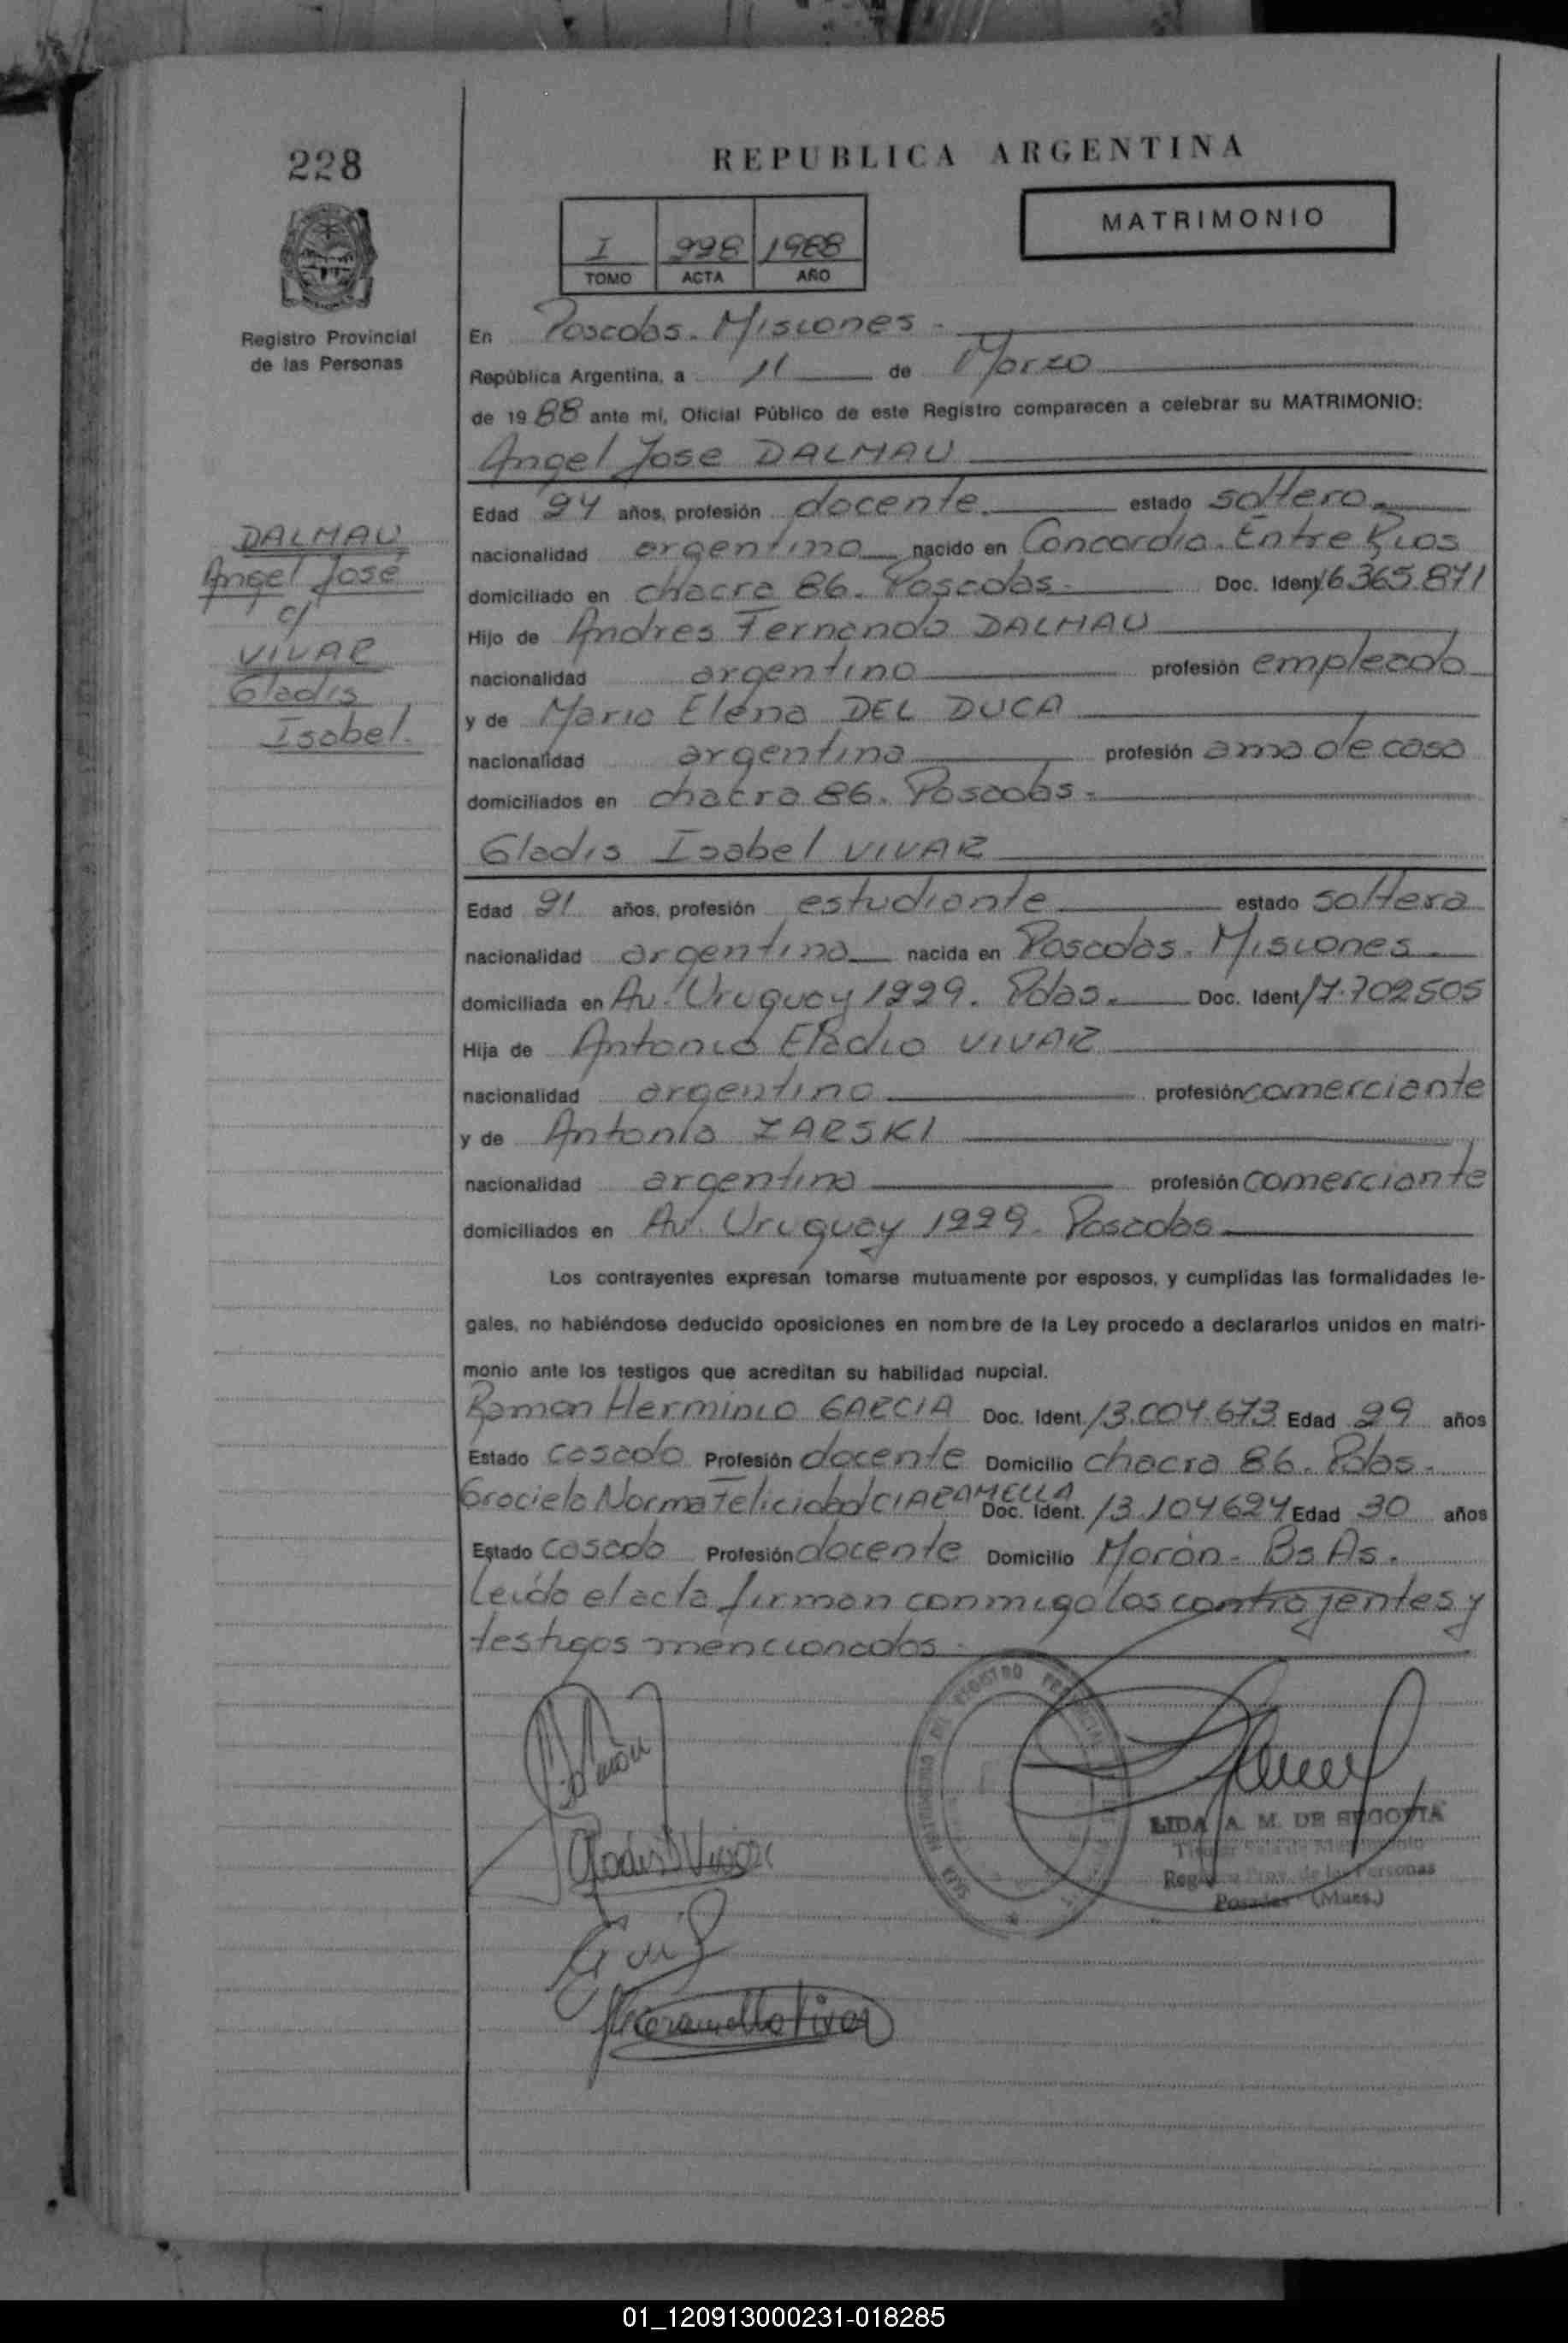 228
REPUBLICA ARGENTINA
MATRIMONIO
I 228 1988
TOMO ACTA AÑO
Registro Provincial
de las Personas
En Posadas. Misiones
República Argentina, a 11 de Marzo
de 1988 ante mí, Oficial Público de este Registro comparecen a celebrar su MATRIMONIO:
Angel Jose DALMAU
Edad 24 años, profesión docente. estado soltero
nacionalidad argentina nacido en Concordia. Entre Rios
domiciliado en chacra 86. Posadas. Doc. Ident. 16.365.871
Hijo de Andres Fernando DALMAU
nacionalidad argentino profesión empleado
y de Maria Elena DEL DUCA
nacionalidad argentina profesión ama de casa
domiciliados en chacra 86. Posadas.
DALMAU
Angel José
c/
VIVAR
Gladis
Isabel.
Gladis Isabel VIVAR
Edad 21 años, profesión estudiante estado soltera
nacionalidad argentina nacida en Posadas. Misiones
domiciliada en Av. Uruguay 1229. Pdas. Doc. Ident. 17.702505
Hija de Antonio Eladio VIVAR
nacionalidad argentino profesión comerciante
y de Antonia ZARSKI
nacionalidad argentina profesión comerciante
domiciliados en Av. Uruguay 1229. Posadas
Los contrayentes expresan tomarse mutuamente por esposos, y cumplidas las formalidades le-
gales, no habiéndose deducido oposiciones en nombre de la Ley procedo a declararlos unidos en matri-
monio ante los testigos que acreditan su habilidad nupcial.
Ramon Herminio GARCIA Doc. Ident. 13.004.673 Edad 29 años
Estado casado Profesión docente Domicilio chacra 86. Pdas.
Graciela Norma Felicidad CIARAMELLA Doc. Ident. 13.104624 Edad 30 años
Estado casada Profesión docente Domicilio Morón. Bs As.
Leida el acta firman conmigo los contrayentes y
testigos mencionados.
LIDA A. M. DE SEGOVIA
Registro Prov. de las Personas
Posadas (Mnes.)
01_120913000231-018285